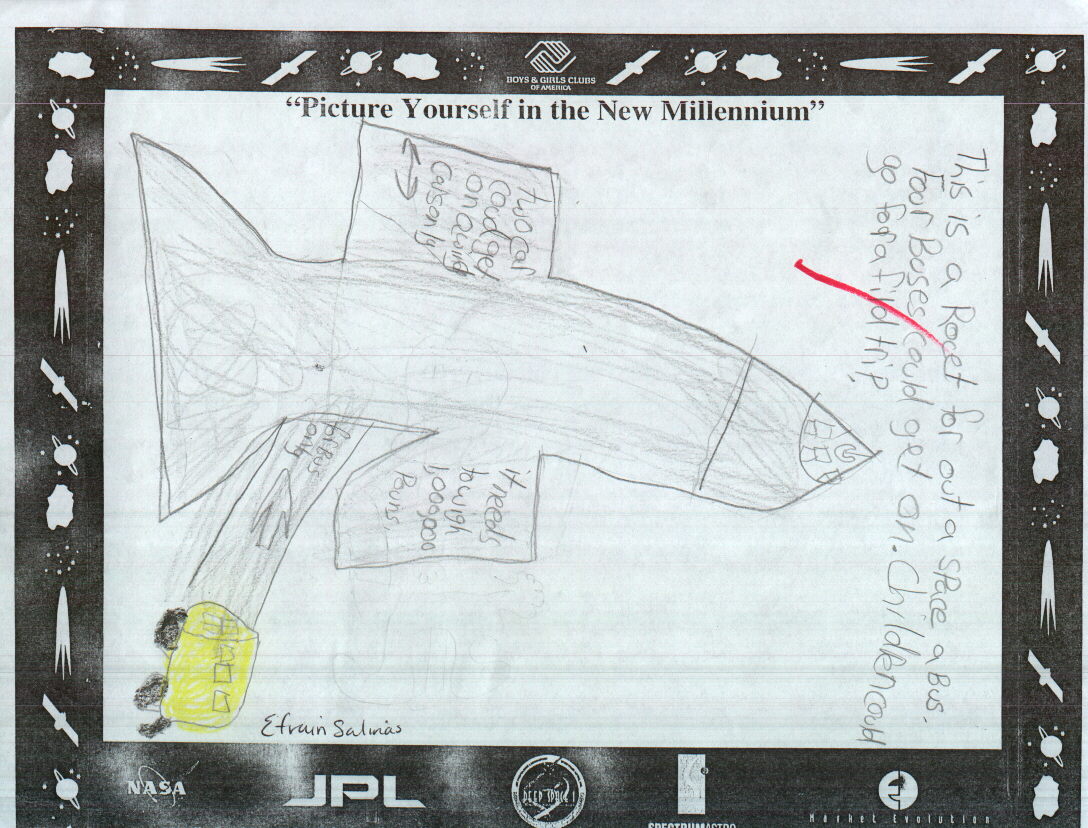 BOYS & GIRLS CLUBS
OF AMERICA
"Picture Yourself in the New Millennium"
This is a Rocet for out a space a Bus.
Four Buses could get on. Children could
go for a fild trip.
two car
coud get
on quind
cars only
it needs
to wigh
1,000,000
Pouns
only
Efrain Salinas
NASA
JPL
DEEP SPACE 1
SPECTRUMASTRO
Market Evolution